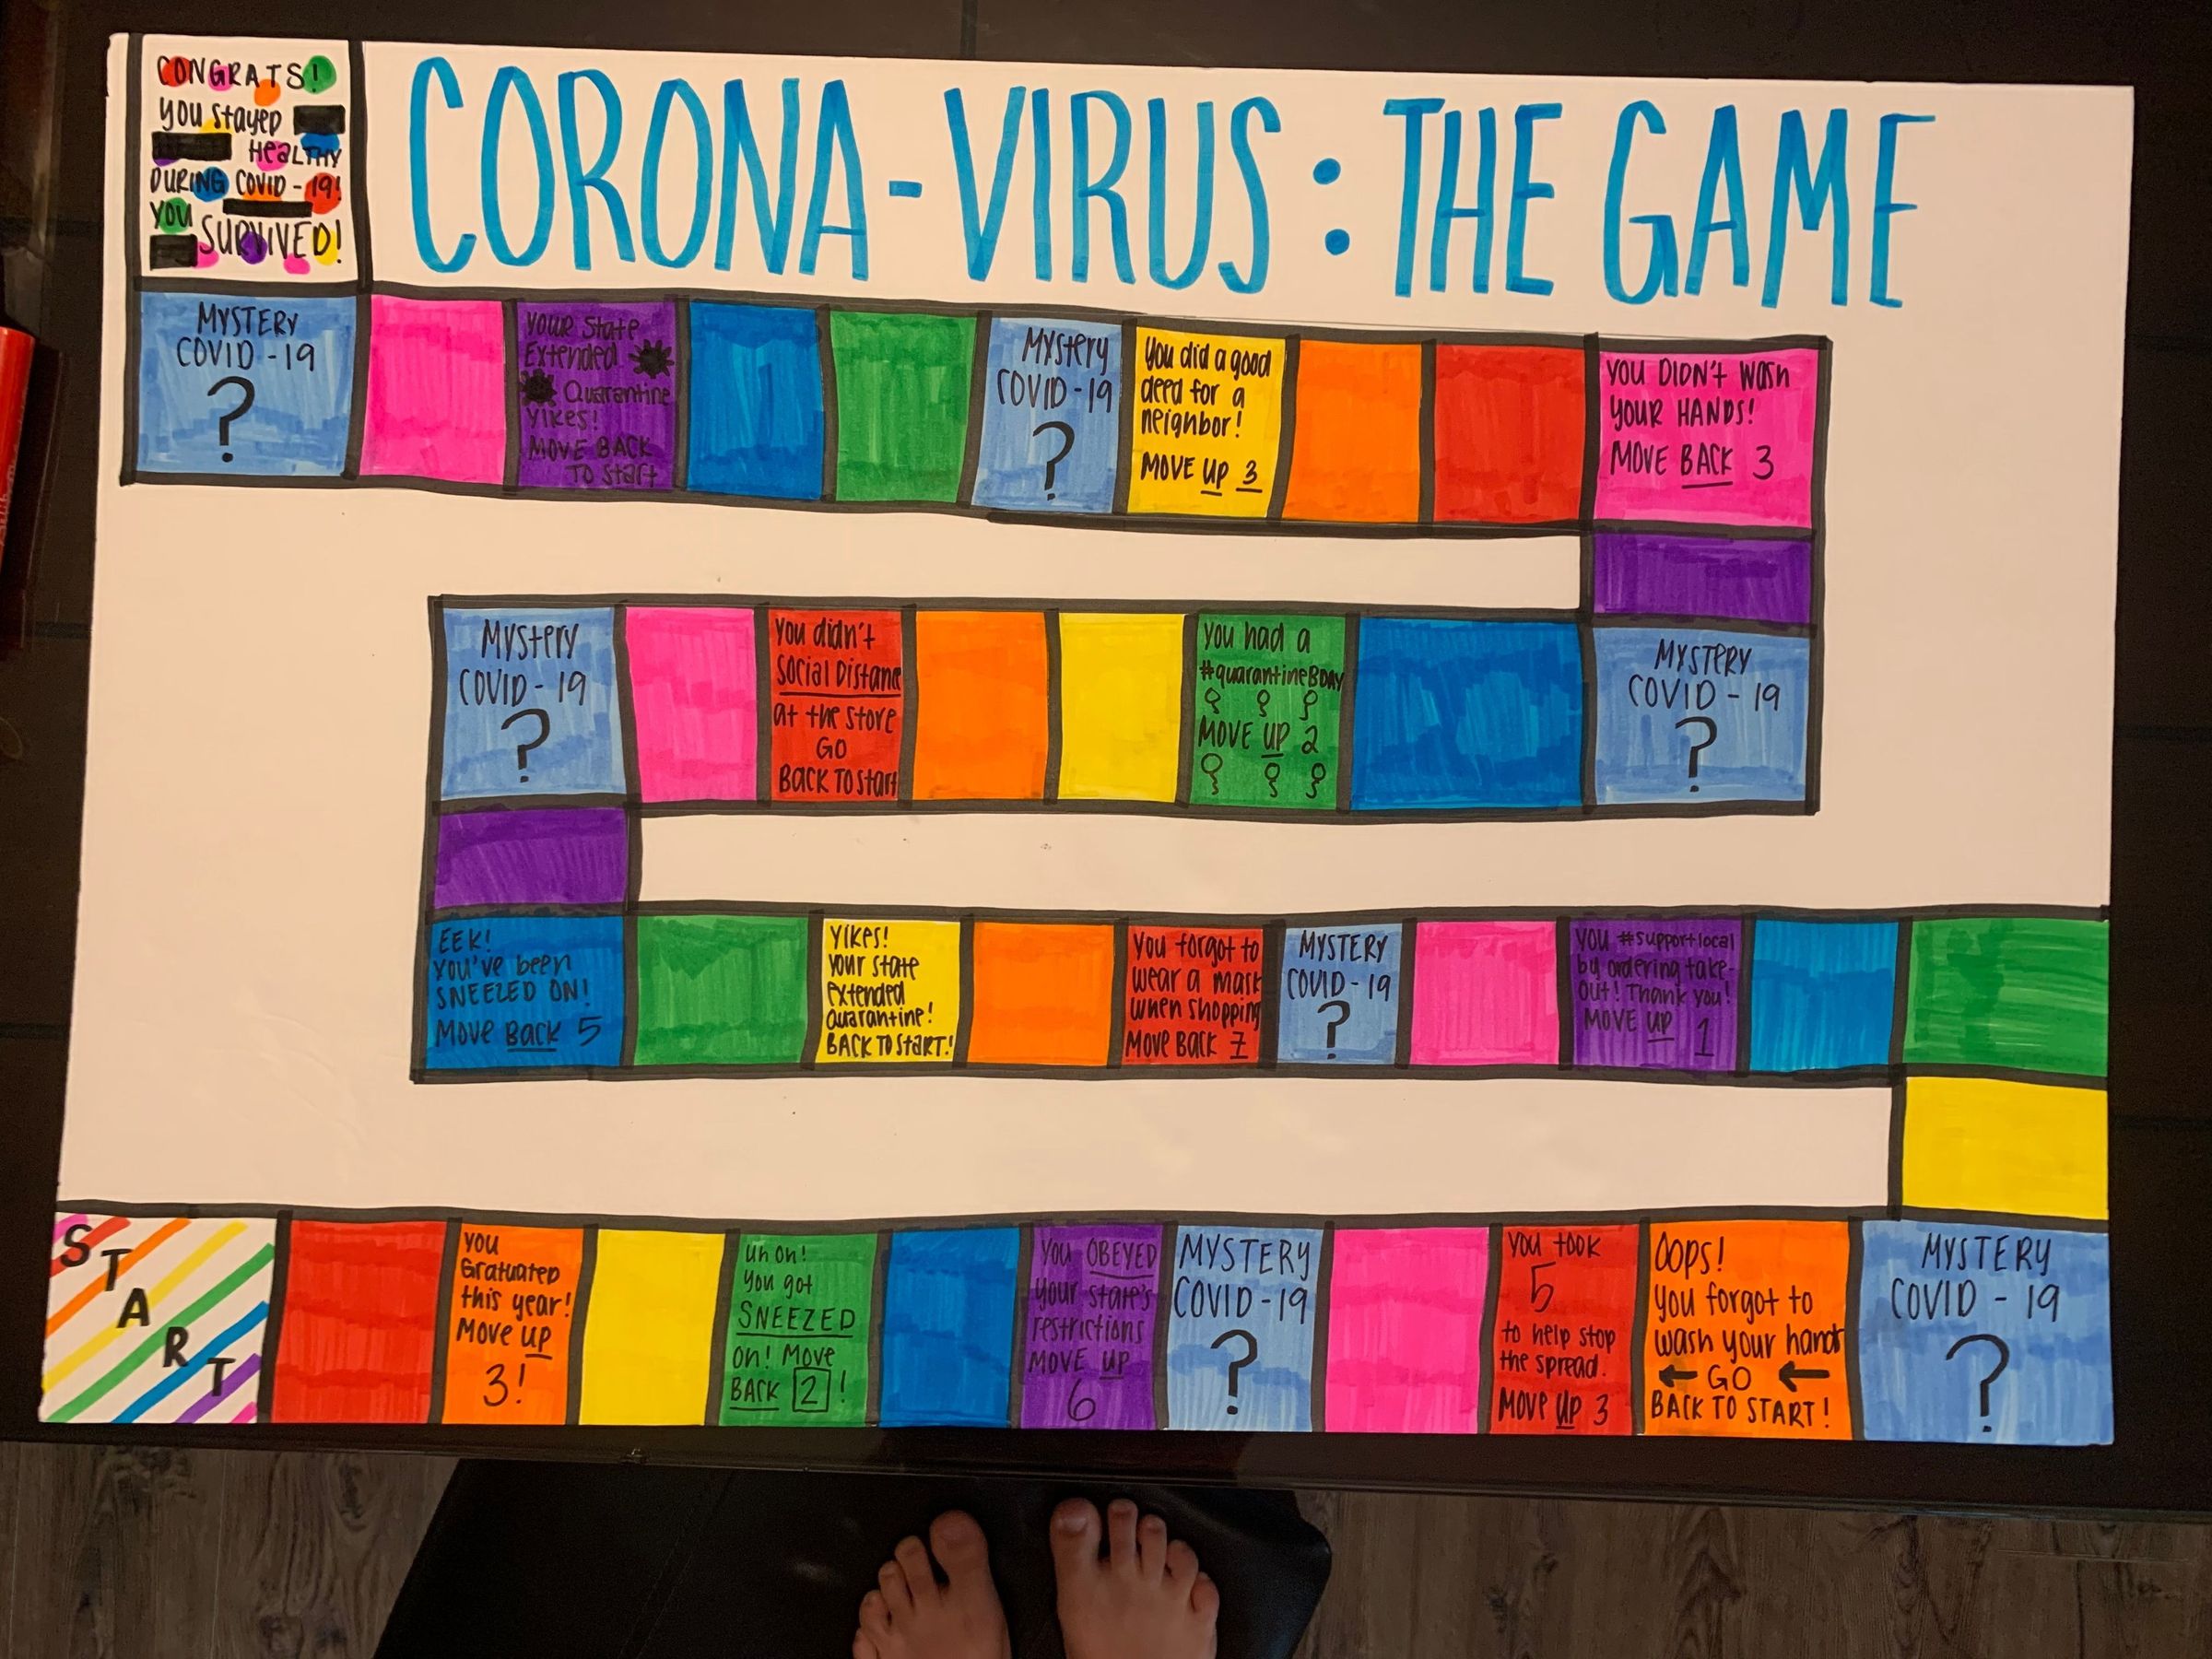 CONGRATS!
you stayed
HEALTHY
DURING COVID-19!
YOU
SURVIVED!
CORONA-VIRUS: THE GAME
MYSTERY
COVID-19
?
YOUR State
Extended
Quarantine
Yikes!
MOVE BACK
TO Start
MYSTERY
COVID-19
?
You did a good
deed for a
neighbor!
MOVE UP 3
YOU DIDN'T WASH
YOUR HANDS!
MOVE BACK 3
MYSTERY
COVID-19
?
You didn't
Social Distance
at the store
GO
BACK TO START
you had a
#quarantineBDAY
MOVE UP 2
MYSTERY
COVID-19
?
EEK!
You've been
SNEEZED ON!
Move Back 5
Yikes!
Your state
extended
Quarantine!
BACK TO START!
You forgot to
wear a mask
when shopping
Move Back 7
MYSTERY
COVID-19
?
YOU #supportlocal
by ordering take-
out! Thank you!
MOVE UP 1
START
YOU
Gratuated
this year!
Move up
3!
Uh Oh!
You got
SNEEZED
on! Move
BACK 2!
You OBEYED
your state's
restrictions
MOVE UP
6
MYSTERY
COVID-19
?
YOU TOOK
5
to help stop
the spread.
Move UP 3
Oops!
You forgot to
wash your hands
← GO ←
BACK TO START!
MYSTERY
COVID-19
?